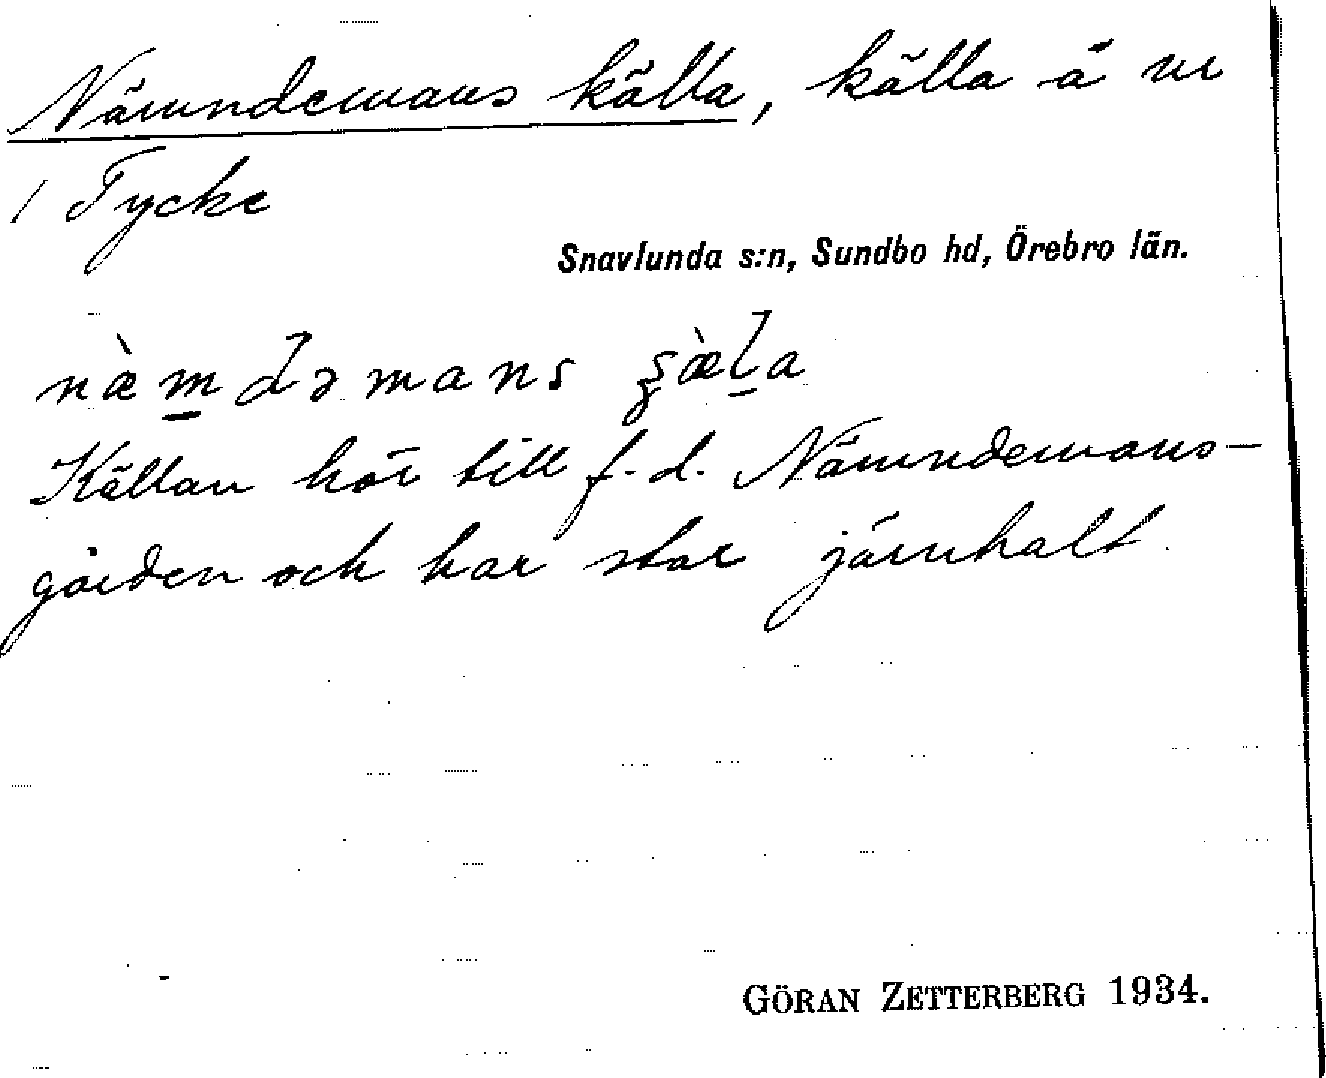 Nämndemans källa, källa å nr
1 Tycke
Snavlunda s:n, Sundbo hd, Örebro län.
næ̀m̲dəmans ʂæ̀l̲a
Källan hör till f.d. Nämndemans-
gården och har stor järnhalt.
GÖRAN ZETTERBERG 1934.